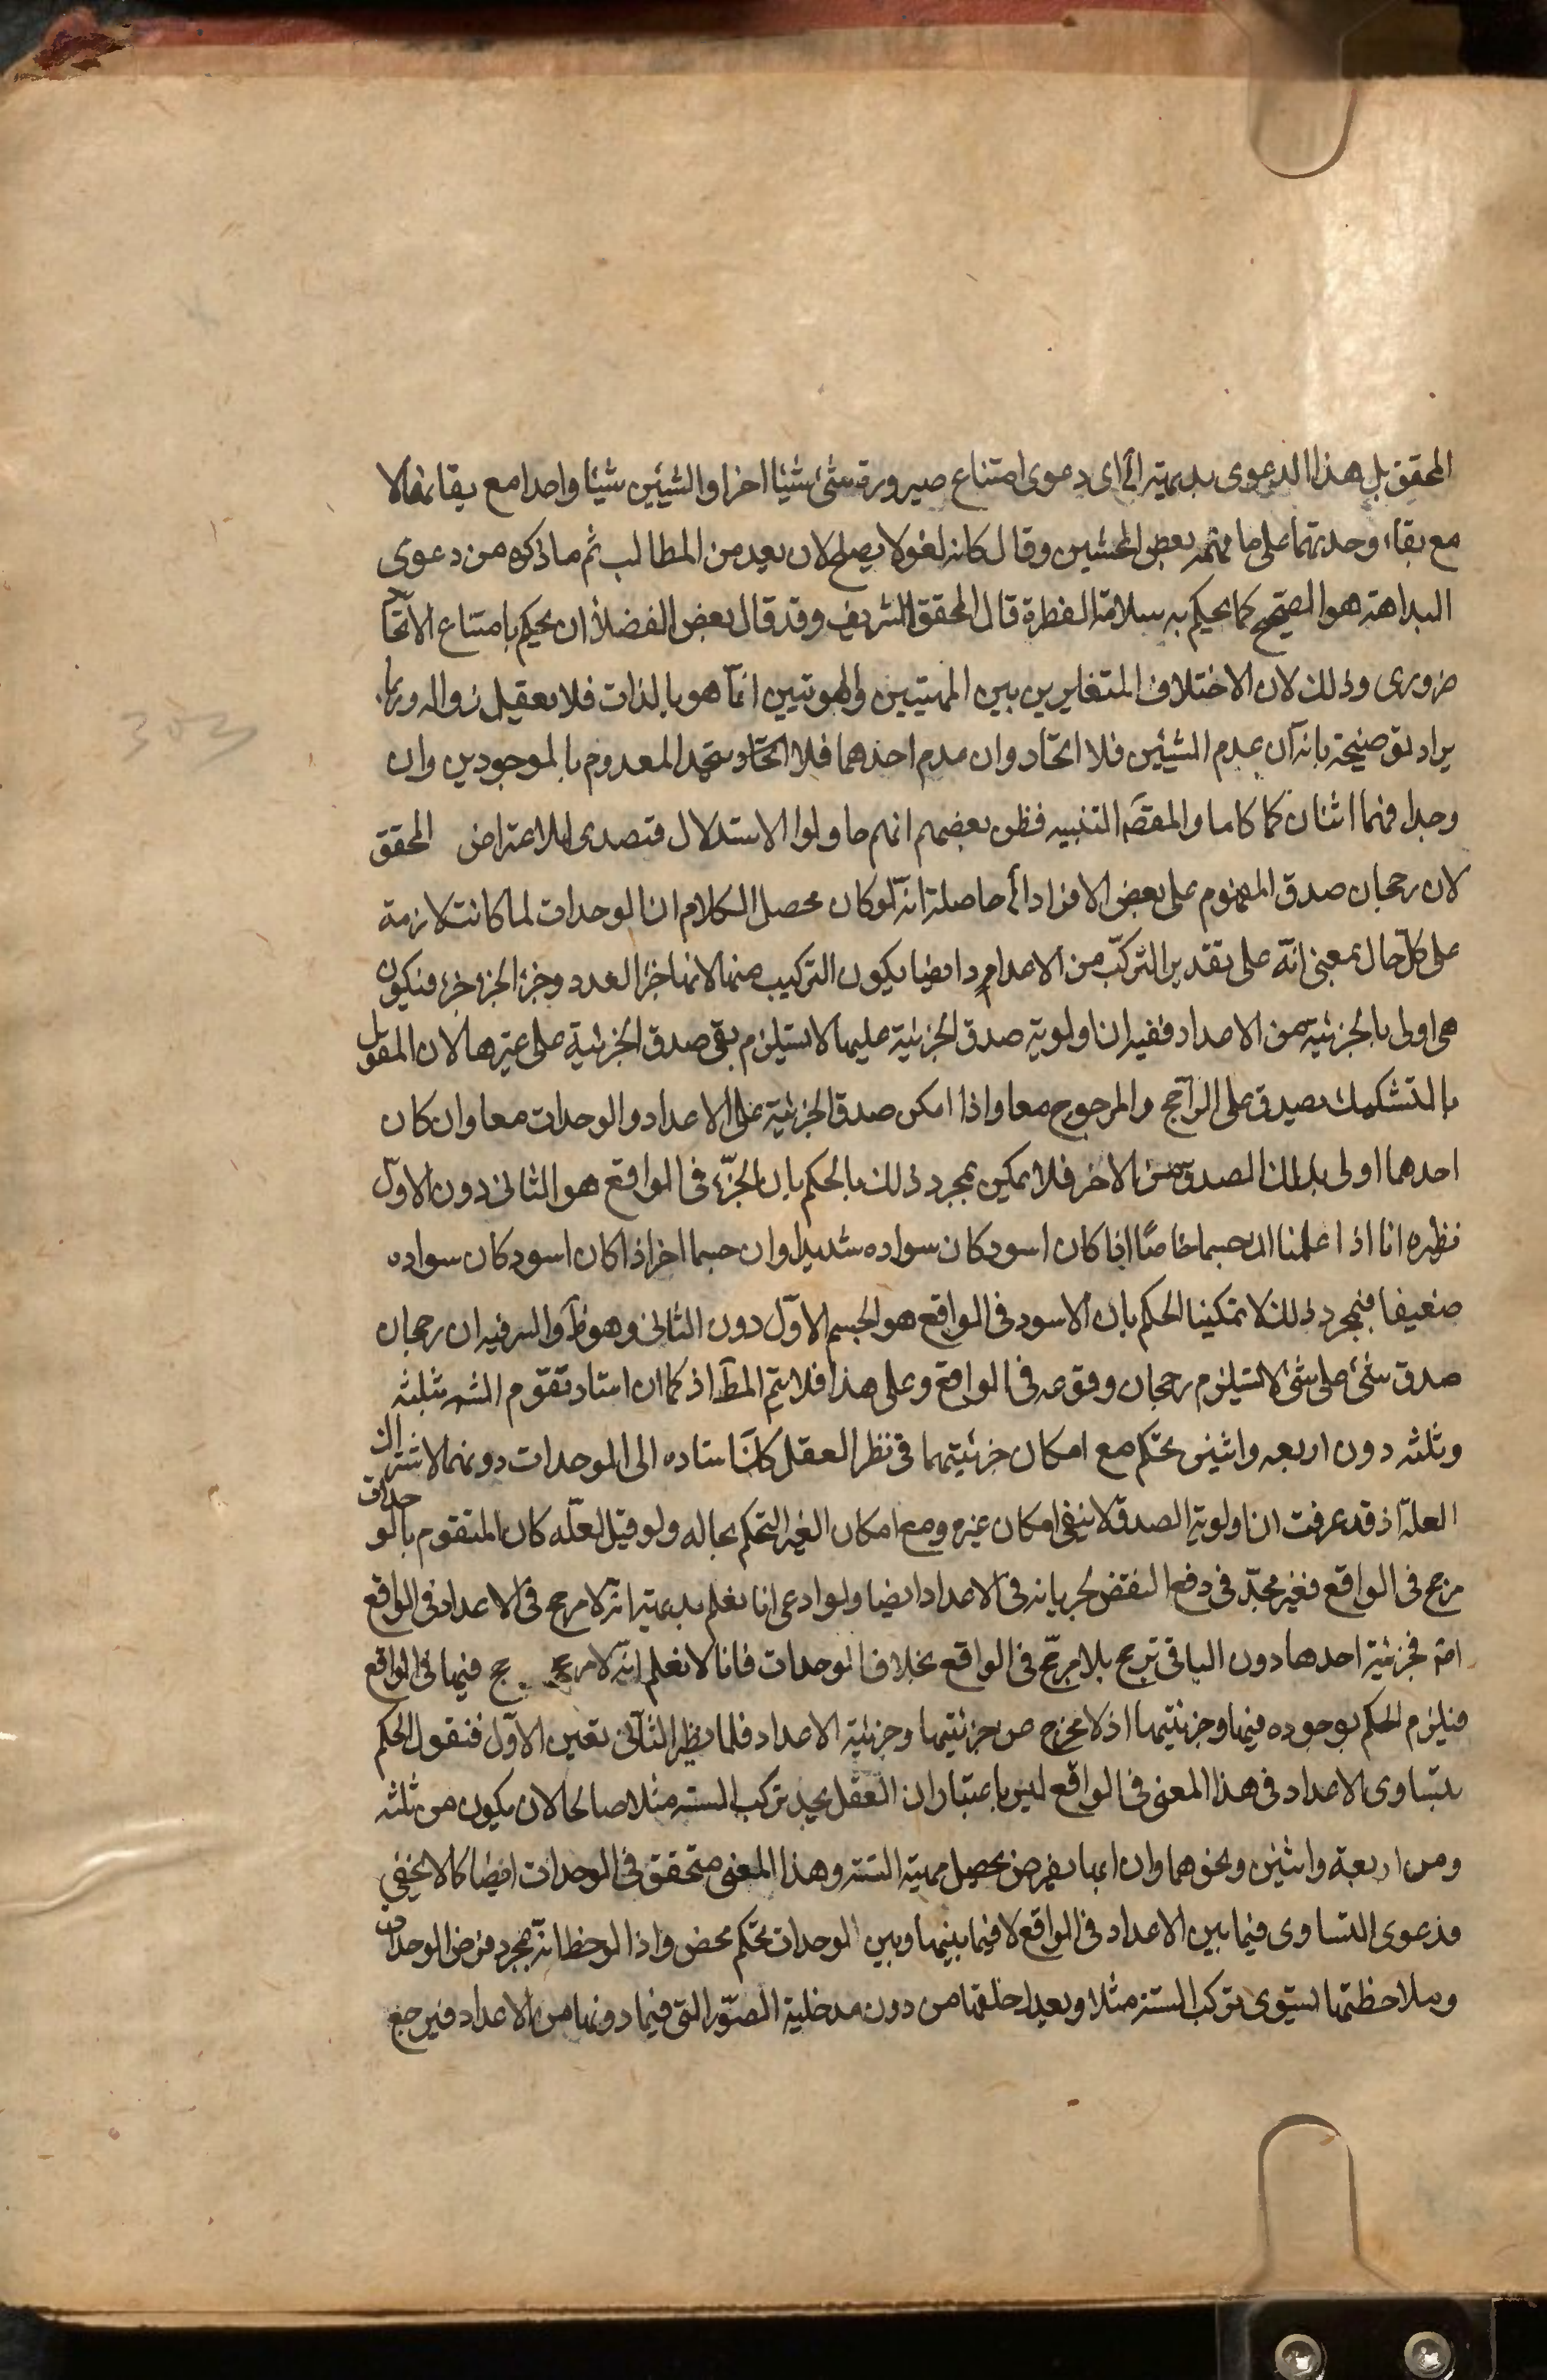 المحقق بل هذا الدعوى بديهية الخ اى دعوى امتناع صيرورة شئ شيئا اخر او الشيئين شيئا واحدا مع بقائهما لا
مع بقاء وحدتهما على ما فهمه بعض المحشين وقال كانه لغو لا يصلح لان يعد من المطالب ثم ما ذكره من دعوى
البداهة هو الصحيح كما يحكم به سلامة الفطرة قال المحقق الشريف وقد قال بعض الفضلا ان يحكم بامتناع الاتحاد
ضرورى وذلك لان الاختلاف المتغايرين بين المهيتين والهويتين انما هو بالذات فلا يعقل زواله وربما
يراد توضيحه بانه ان عدم الشيئين فلا اتحاد وان عدم احدهما فلا اتحاد يتحد المعدوم بالموجودين وان
وجدا فهما اثنان كما كاما والمقصَ التنبيه فظن بعضهم انهم حاولوا الاستدلال فتصدى للاعتراض المحقق
لان رجحان صدق المفهوم على بعض الافراد الخ حاصله انه لو كان محصل الكلام ان الوحدات لما كانت لازمة
على كل حال بمعنى انه على تقدير التركّب من الاعداد ايضا يكون التركيب منها لانها جزء العدد وجزء الجزء جزء فيكون
هى اولى بالجزئية من الاعداد ففيه ان اولوية صدق الجزئية عليها لا يستلزم بقى صدق الجزئية على غيرها لان المقول
بالتشكيك يصدق على الراجح والمرجوح معا واذا امكن صدق الجزئية على الاعداد والوحدات معا وان كان
احدهما اولى بذلك الصدق من الاخر فلا يمكن بمجرد ذلك بالحكم بان الجزء فى الواقع هو الثانى دون الاول
نظيره انا اذا علمنا ان جسما خاصًا اذا كان اسود كان سواده شديدا وان جسما اخر اذا كان اسود كان سواده
ضعيفا فبمجرد ذلك لا يمكننا الحكم بان الاسود فى الواقع هو الجسم الاول دون الثانى وهو ظَ والسر فيه ان رجحان
صدق شئ على شئ لا يستلزم رجحان وقوعه فى الواقع وعلى هذا فلا يتم المطَ اذ كما ان استاد تقوم الستة بثلثه
وثلثه دون اربعه واثنين تحكم مع امكان جزئيتهما فى نظر العقل كذا استاده الى الوحدات دونهما لاشتراك
العلة اذ قد عرفت ان اولوية الصدق لا ينفى امكان غيره ومع امكان الغير التحكم بحاله ولو قيل لعله كان المتقوم بالوحدات
مرجح فى الواقع فغير مجدّ فى دفع النقض لجريانه فى الاعداد ايضا ولو ادعى انا نعلم بديهية انه لا مرجح فى الاعداد فى الواقع
امة فجزئية احدها دون الباقى ترجح بلا مرجّح فى الواقع بخلاف الوحدات فانا لا نعلم انه لا مرجح فيها فى الواقع
فيلزم الحكم بوجوده فيها وجزئيتها اذ لا مخرج من جزئيتها وجزئية الاعداد فلما بطل الثانى تعين الاول فنقول الحكم
بتساوى الاعداد فى هذا المعنى فى الواقع ليس باعتبار ان العقل يجد تركب الستة مثلا صالحا لان يكون من ثلثه
ومن اربعة واثنين ونحوهما وان ايها يفرض يحصل مهية الستة وهذا المعنى متحقق فى الوحدات ايضا كما لا يخفى
فدعوى التساوى فيما بين الاعداد فى الواقع لا فيما بينها وبين الوحدات تحكم محض واذا لوحظ انه بمجرد فرض الوحدات
وملاحظتها يستوى تركب الستة مثلا وبعد خلقها من دون مدخلية الصور التى فيما دونها من الاعداد فيرجع